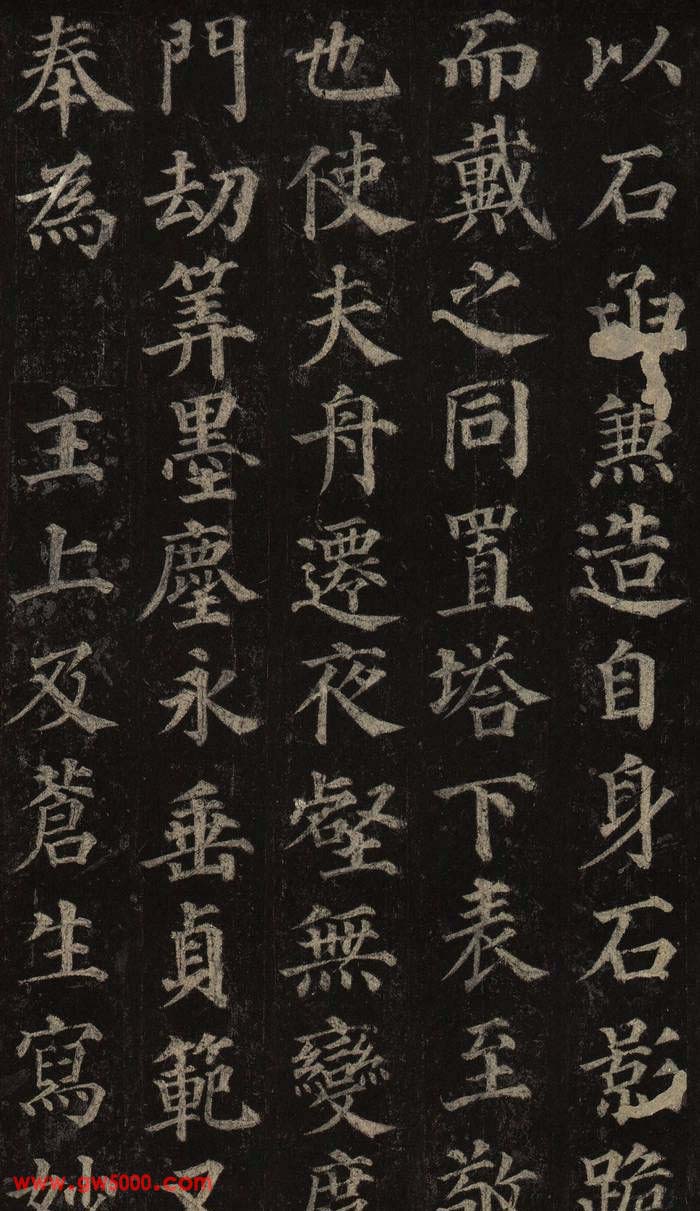 以石函兼造自身石影跪
而戴之同置塔下表至敬
也使夫舟遷夜壑無變度
門劫筭墨塵永垂貞範又
奉為主上及蒼生寫妙
www.gw5000.com